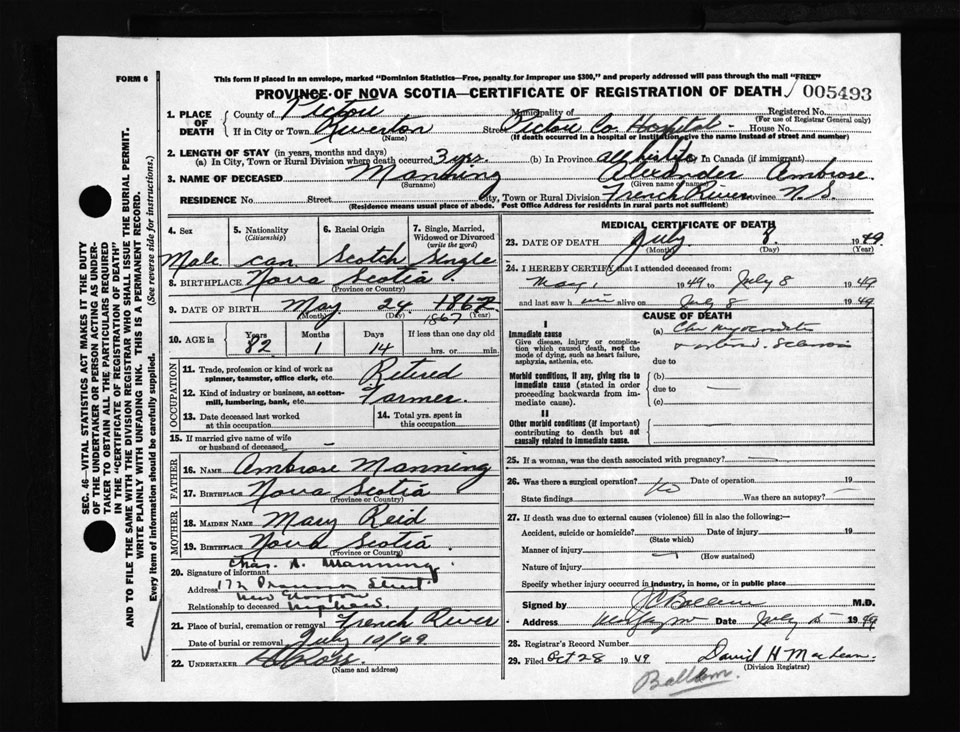 FORM 6
This form if placed in an envelope, marked "Dominion Statistics—Free, penalty for improper use $300," and properly addressed will pass through the mail "FREE"
PROVINCE OF NOVA SCOTIA—CERTIFICATE OF REGISTRATION OF DEATH 005493
1. PLACE OF DEATH { County of Pictou Municipality of Registered No.
(For use of Registrar General only)
If in City or Town Riverton Street Pictou Co. Hospital House No.
(Name) (If death occurred in a hospital or institution, give the name instead of street and number)
2. LENGTH OF STAY (in years, months and days)
(a) In City, Town or Rural Division where death occurred 3 yrs. (b) In Province all his life In Canada (if immigrant)
3. NAME OF DECEASED Manning Alexander Ambrose.
(Surname) (Given name or names)
RESIDENCE No. Street City, Town or Rural Division French River Province N.S.
(Residence means usual place of abode. Post Office Address for residents in rural parts not sufficient)
4. Sex 5. Nationality (Citizenship) 6. Racial Origin 7. Single, Married, Widowed or Divorced (write the word)
Male can Scotch Single
8. BIRTHPLACE Nova Scotia
(Province or Country)
9. DATE OF BIRTH May 24 1867
(Month) (Day) 1867 (Year)
10. AGE in Years Months Days If less than one day old
82 1 14 hrs. or min.
OCCUPATION
11. Trade, profession or kind of work as spinner, teamster, office clerk, etc. Retired
12. Kind of industry or business, as cotton-mill, lumbering, bank, etc. Farmer.
13. Date deceased last worked at this occupation 14. Total yrs. spent in this occupation
15. If married give name of wife or husband of deceased –
FATHER
16. NAME Ambrose Manning
17. BIRTHPLACE Nova Scotia
(Province or Country)
MOTHER
18. MAIDEN NAME Mary Reid
19. BIRTHPLACE Nova Scotia.
(Province or Country)
20. Signature of informant Chas. A. Manning
Address 172 Street
New Glasgow
Relationship to deceased Nephew.
21. Place of burial, cremation or removal French River
Date of burial or removal July 10/49
22. UNDERTAKER
(Name and address)
MEDICAL CERTIFICATE OF DEATH
23. DATE OF DEATH July 8 1949
(Month) (Day) (Year)
24. I HEREBY CERTIFY that I attended deceased from:
May, 1949 to July 8 1949
and last saw him alive on July 8 1949
CAUSE OF DEATH
I
Immediate cause
Give disease, injury or complication which caused death, not the mode of dying, such as heart failure, asphyxia, asthenia, etc.
(a)
due to
Morbid conditions, if any, giving rise to immediate cause (stated in order proceeding backwards from immediate cause).
(b)
due to
(c)
II
Other morbid conditions (if important) contributing to death but not causally related to immediate cause.
25. If a woman, was the death associated with pregnancy?
26. Was there a surgical operation? No Date of operation 19
State findings Was there an autopsy?
27. If death was due to external causes (violence) fill in also the following:—
Accident, suicide or homicide? Date of injury 19
(State which)
Manner of injury
(How sustained)
Nature of injury
Specify whether injury occurred in industry, in home, or in public place
Signed by M.D.
Address Date July 1949
28. Registrar's Record Number
29. Filed Oct 28 1949 David H MacLean
(Division Registrar)
Ballem.
SEC. 46—VITAL STATISTICS ACT MAKES IT THE DUTY
OF THE UNDERTAKER OR PERSON ACTING AS UNDER-
TAKER TO OBTAIN ALL THE PARTICULARS REQUIRED
IN THE "CERTIFICATE OF REGISTRATION OF DEATH"
AND TO FILE THE SAME WITH THE DIVISION REGISTRAR WHO SHALL ISSUE THE BURIAL PERMIT.
WRITE PLAINLY WITH UNFADING INK. THIS IS A PERMANENT RECORD.
Every item of information should be carefully supplied. (See reverse side for instructions.)